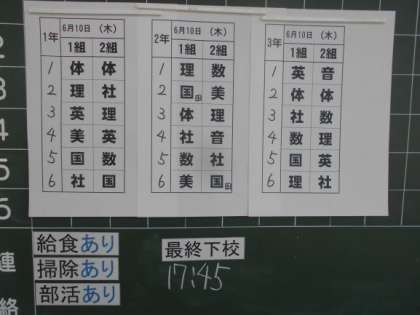 1年 6月10日 (木)
1組 2組
1 体 体
2 理 社
3 英 理
4 美 英
5 国 数
6 社 国
2年 6月10日 (木)
1組 2組
1 理 数
2 国田 美
3 体 理
4 社 音
5 数 社
6 美 国田
3年 6月10日 (木)
1組 2組
1 英 音
2 体 体
3 社 数
4 数 理
5 国 英
6 理 社
2
3
4
5
6
連
絡
給食あり
掃除あり
部活あり
最終下校
17:45